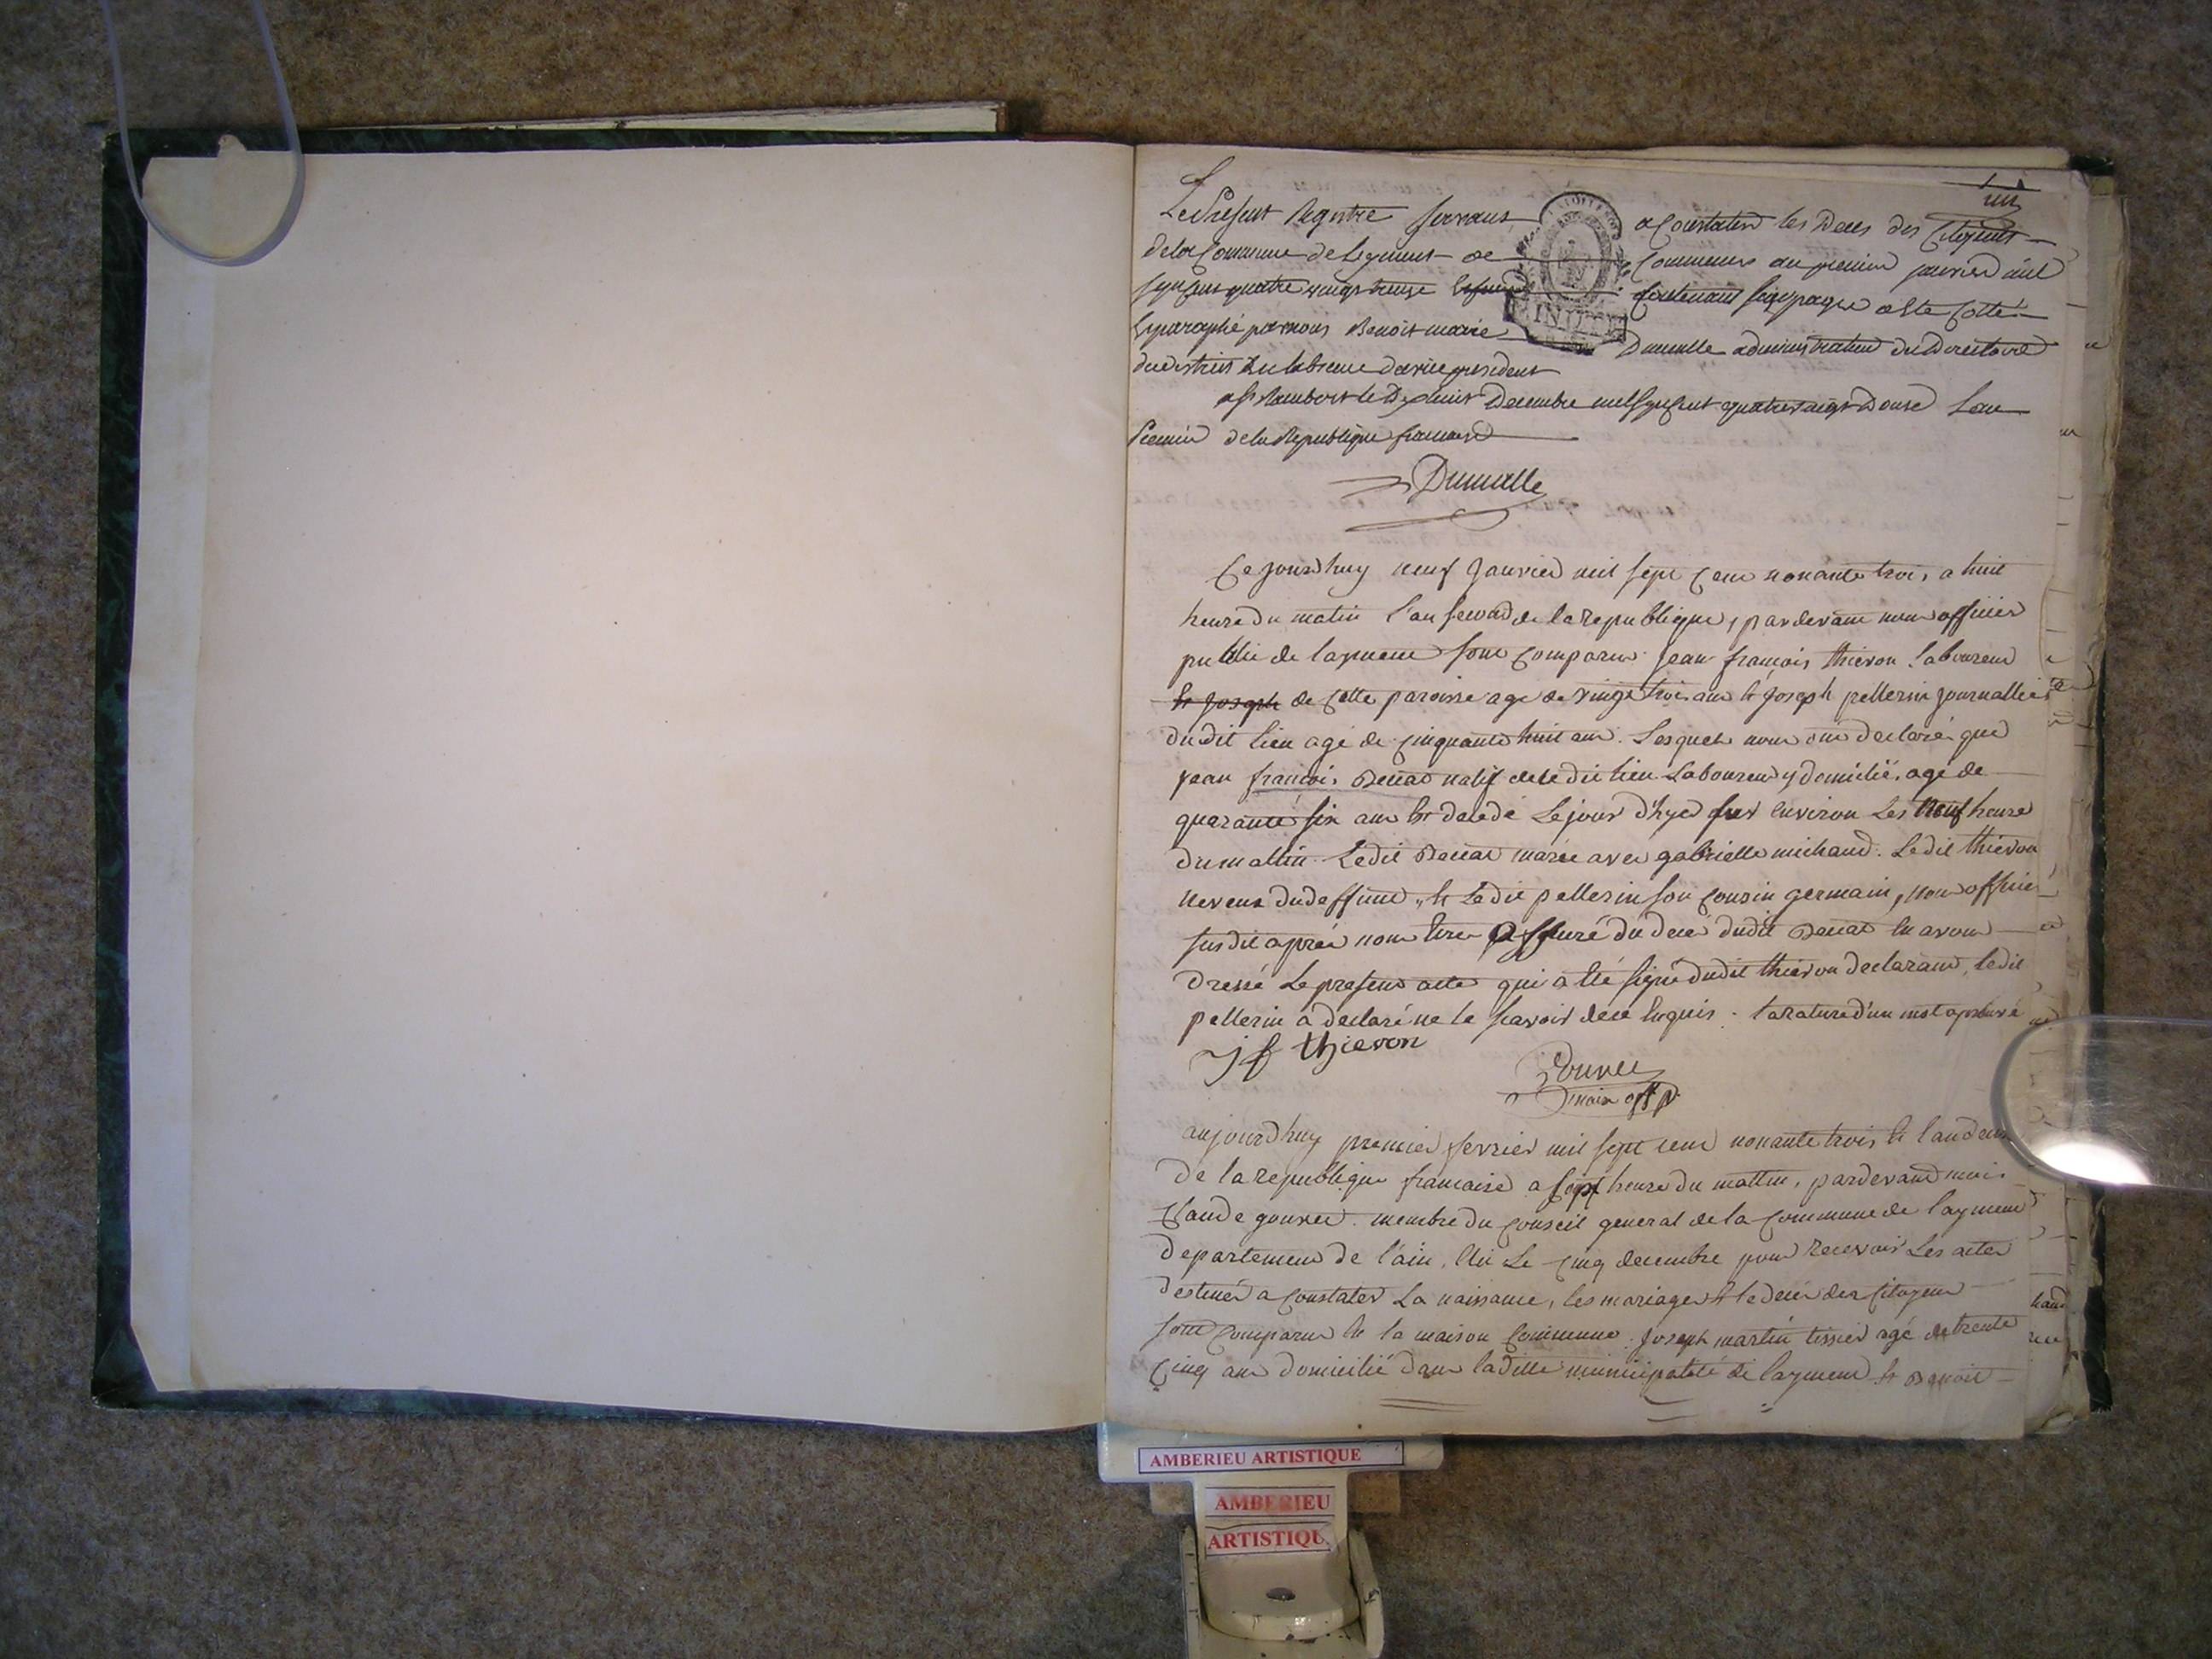 un
Le Present Registre servant a Constater les Deces des Citoyens
de la Commune de Leyment Commence au premier janvier mil
sept cent quatre vingt treize contenant pages a ete Cotté
et paraphé par nous Benoit marie Dumolle administrateur du Directoire
du district
a St Rambert le Decembre mil sept cent quatre vingt Douze L'an
Premier de la Republique francaise
Dumolle
Ce jourdhuy neuf Janvier mil sept cent nonante trois, a huit
heure du matin l'an second de la republique, pardevant nous officier
public de layment sont comparus jean francois thievon laboureur
et Joseph de cette paroisse age de vingt trois ans et joseph pellerin journallier
dudit lieu agé de cinquante huit ans. Lesquels nous ont declaré que
jean francois natif de ce dit lieu Laboureur y domicilié, agé de
quarante six ans est decedé Le jour d'hyer sur environ Les Neuf heure
du mattin. Ledit marié avec gabrielle michaud. Ledit thievon
neveux du deffunt, et Ledit pellerin son cousin germain, nous officier
susdit après nous etre assuré du decé dudit en avons
dressé Le present acte qui a été signé dudit thievon declarant, ledit
pellerin a declaré ne le scavoir de ce enquis. la rature d'un mot aprouvé
jf thievon
gouvee
maire off p
aujourdhuy premier fevrier mil sept cent nonante trois et l'an deux
de la republique francaise a sept heure du mattin, pardevant moi
Claude gouvee membre du conseil general de la commune de layment
departement de l'ain, élu Le cinq decembre pour recevoir Les actes
destinés a constater La naissance, les mariages et le decés des citoyens
sont comparus en la maison commune joseph martin tissier agé de trente
cinq ans domicilié dans ladite municipalité de layment et Benoit
AMBERIEU ARTISTIQUE
AMBERIEU
ARTISTIQU